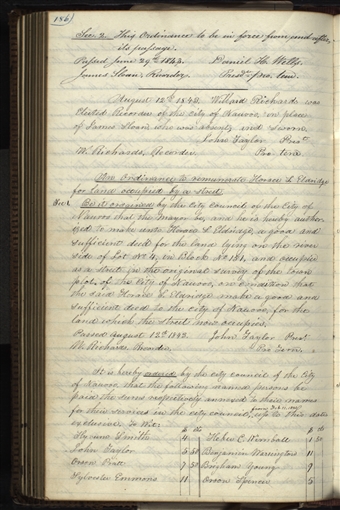 186
Sec. 2. This Ordinance to be in force from and after
its passage.
Passed June 29th 1843. Daniel H. Wells.
James Sloan, Recorder Prest. pro. tem.
August 12th 1843. Willard Richards was
Elected Recorder of the City of Nauvoo, in place
of James Sloan who was absent, and sworn.
John Taylor Prest.
W. Richards, Recorder. Pro tem
An Ordinance to remunerate Horace S. Eldridge
for land occupied by a street
Sec 1. Be it ordained by the City Council of the City of
Nauvoo that the Mayor be, and he is hereby author-
ized to make unto Horace S. Eldridge, a good and
sufficient deed for the land lying on the
side of Lot No. 4, in Block No. 121, and occupied
as a street in the original survey of the town
plot, of the City of Nauvoo, on condition that
the said Horace S. Eldridge make a good and
sufficient deed to the city of Nauvoo, for the
land which the street now occupies.
Passed August 12th 1843. John Taylor Prest
W. Richards, Recorder. Pro Tem.
It is hereby ordered by the city council of the City
of Nauvoo that the following named persons be
paid the sums respectively annexed to their names
for their services in the city council, up to this date
exclusive To Wit:
Hyrum Smith 4 Heber C. Kimball 1.50
John Taylor 5.50 Benjamin Warrington 11
Orson Pratt 7.50 Brigham Young 9
Sylvester Emmons 11 Orson Spencer 5